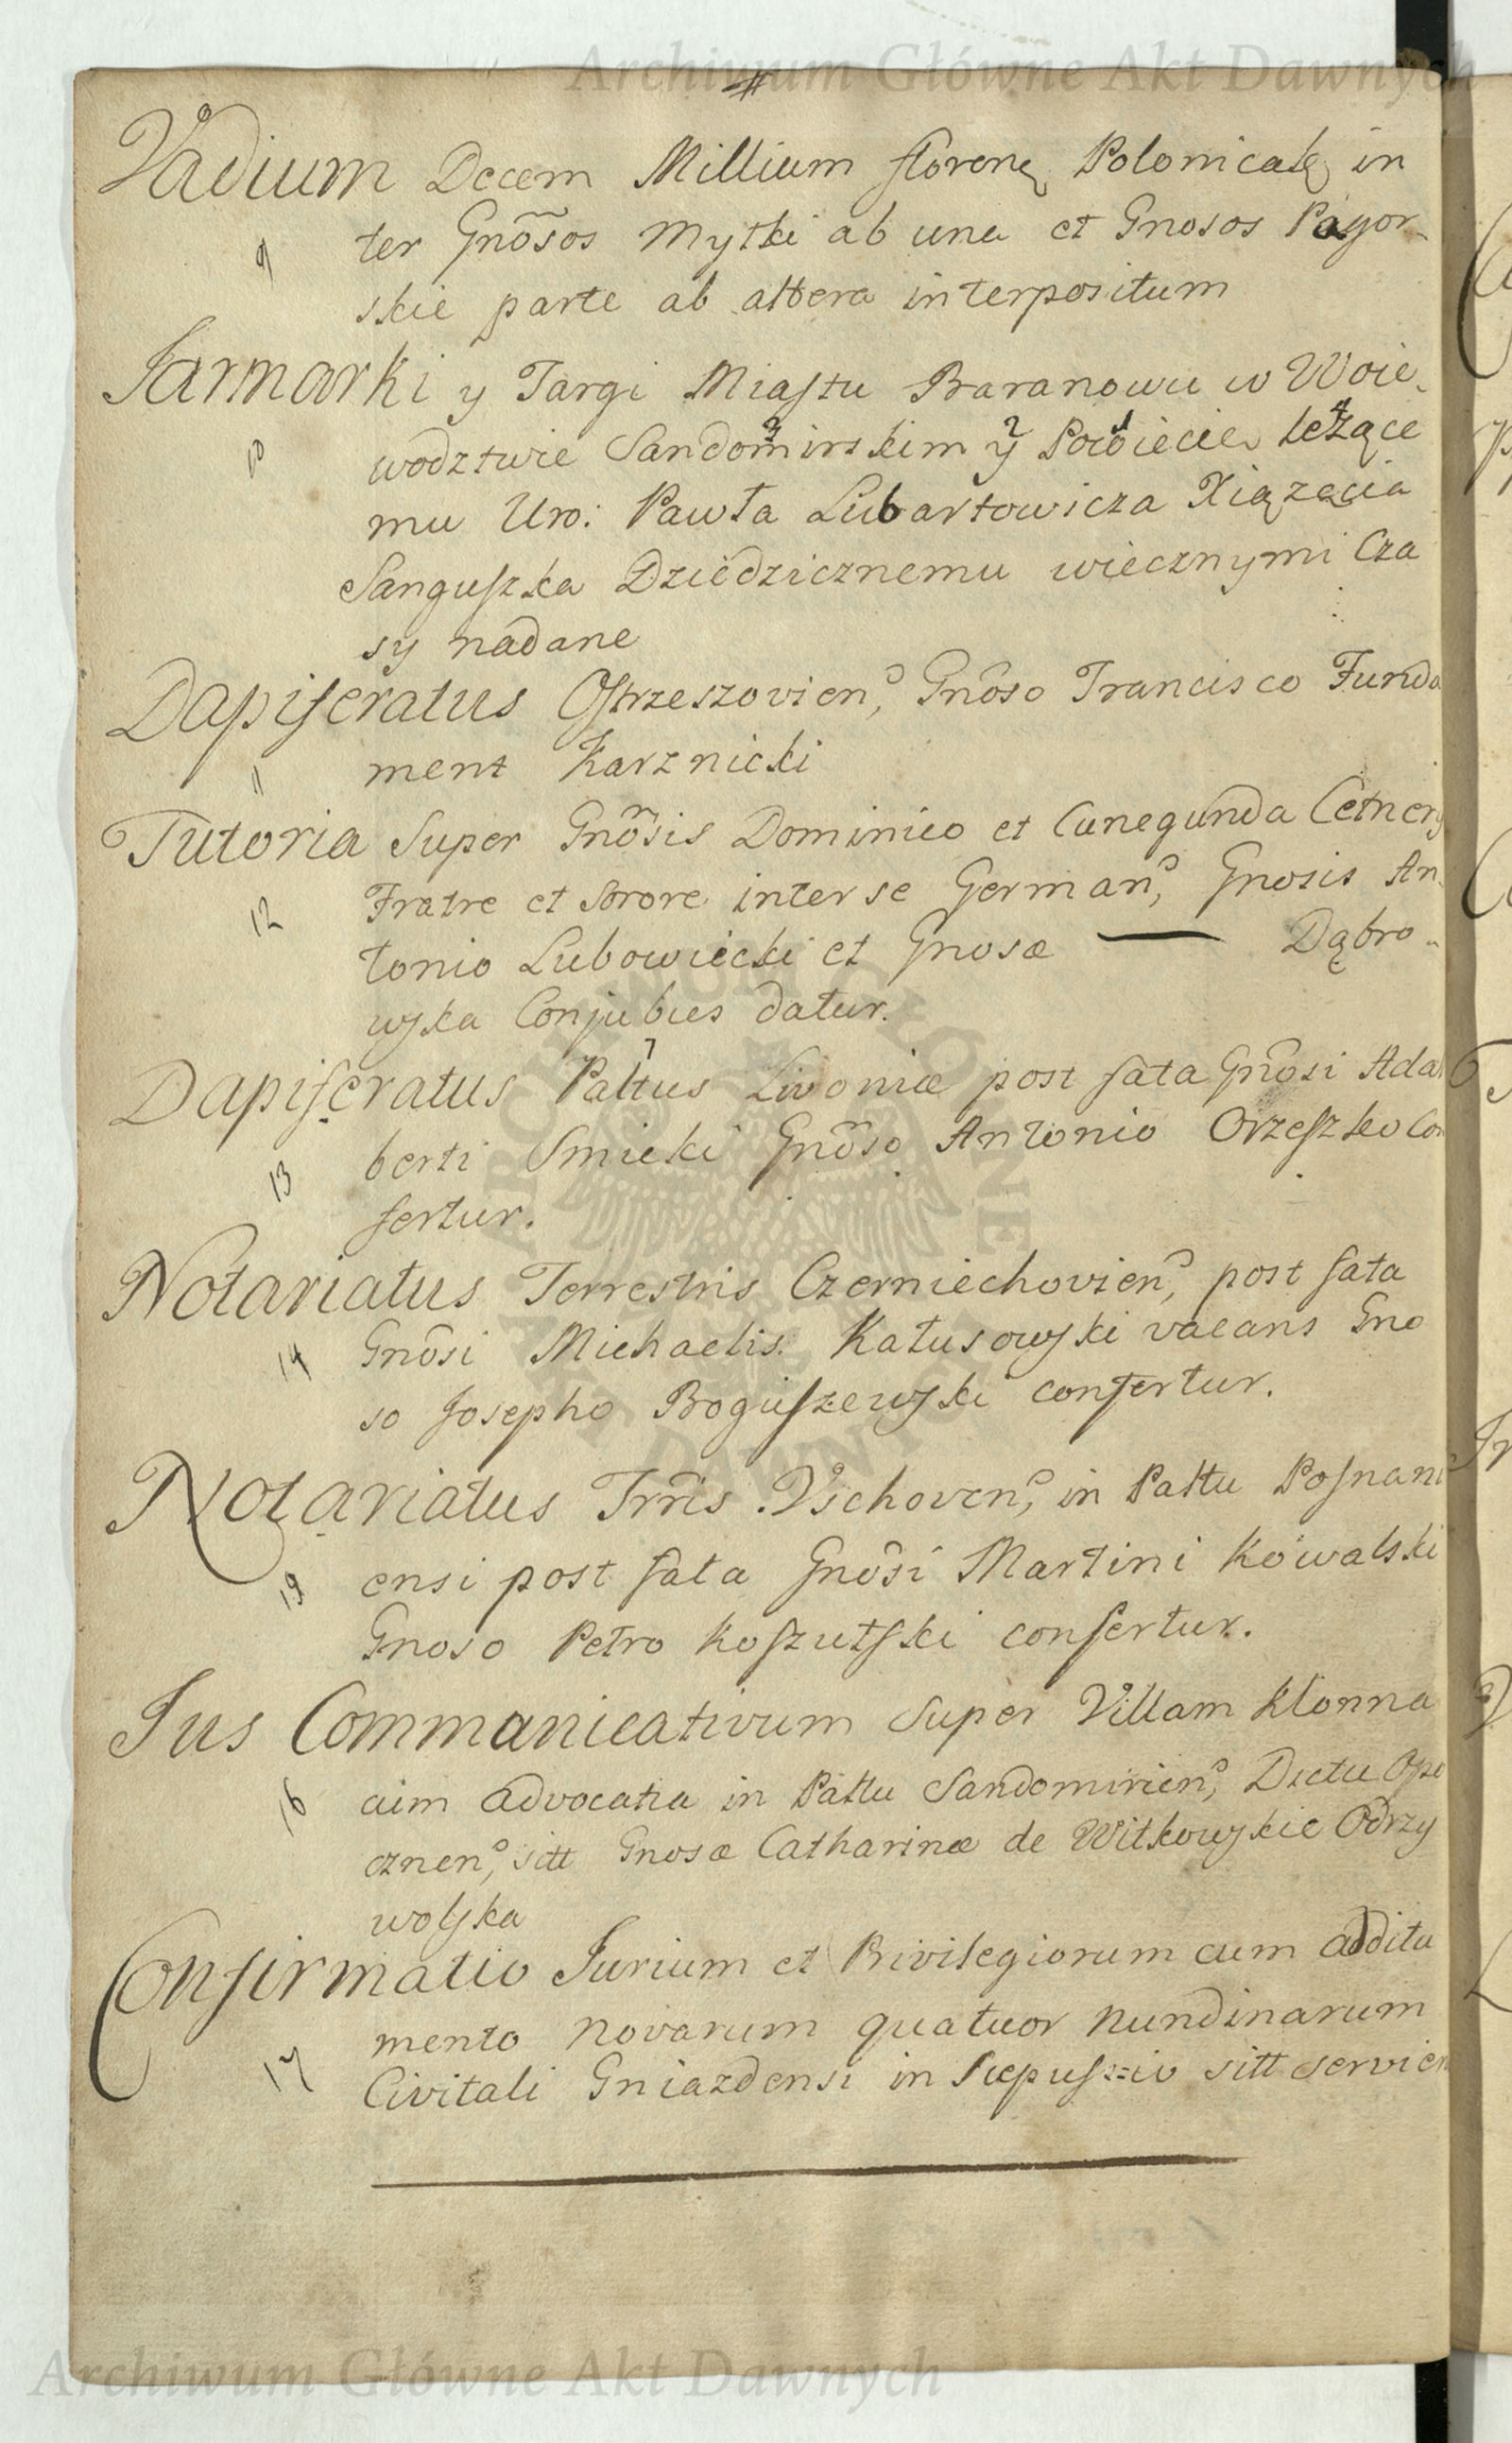 Archiwum Główne Akt Dawnych
#
Vadium Decem Millium floren, Polonical, in
9 ter Gnosos Mytki ab una et Gnosos Pagor-
skie parte ab altera interpositum
Jarmarki y Targi Miastu Baranowu w Woie-
10 wodztwie Sandomirskim y Powiecie leżące
mu Uro: Pawła Lubartowicza Xiązęcia
Sanguszka Dziedzicznemu wiecznymi Cza
sy nadane
Dapiferatus Ostrzeszovien, Gnoso Francisco Funda
11 ment Karznicki
Tutoria Super Gnosis Dominico et Cunegunda Cetnery
12 Fratre et Sorore inter se German, Gnosis An
tonio Lubowiecki et Gnosæ — Dąbro-
wska Conjubus datur.
Dapiferatus Paltus Livoniæ post fata Gnosi Adal
13 berti Smieki Gnoso Antonio Orzeszko Con
fertur.
Notariatus Terrestris Czerniechovien, post fata
14 Gnosi Michaelis Katusowski vacans Gno
so Josepho Boguszewski confertur.
Notariatus Trris Vschoven, in Paltu Posnani
15 ensi post fata Gnosi Martini Kowalski
Gnoso Petro Koszutski confertur.
Jus Communicativum Super Villam Klonna
16 aim Advocatia in Paltu Sandomirien, Dictu Opo
cznen, sitt Gnosæ Catharinæ de Witkowskie Odrzy
wolska
Confirmatio Jurium et Privilegiorum cum addita
mento novarum quatuor nundinarum
17 Civitati Gniazdensi in Scepuszio sitt servien
ARCHIWUM GŁÓWNE AKT DAWNYCH
Archiwum Główne Akt Dawnych